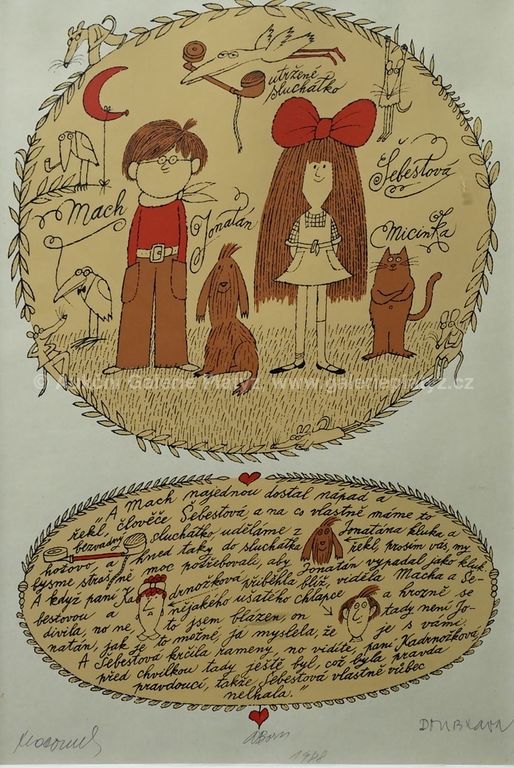 utržené
sluchátko
Šebestová
Mach
Jonatán
Micinka
© Aukční Galerie Platýz, www.galerieplatyz.cz
"A Mach najednou dostal nápad a
řekl, člověče Šebestová a na co vlastně máme to
bezvadný sluchátko uděláme z Jonatána kluka a
hotovo a hned taky do sluchátka řekl, prosím vás, my
bysme strašně moc potřebovali, aby Jonatán vypadal jako kluk.
A když paní Kadrnožková přiběhla blíž, viděla Macha a Še-
bestovou a nějakého ušatého chlapce a hrozně se
divila, no né, to jsem blázen, on tady není Jo-
natán, jak je to možné, já myslela, že je s vámi.
A Šebestová krčila rameny, no vidíte, paní Kadrnožková
před chvilkou tady ještě byl, což byla pravda
pravdoucí, takže Šebestová vlastně vůbec
nelhala."
Macourek
aBorn
1988
DOUBRAVA